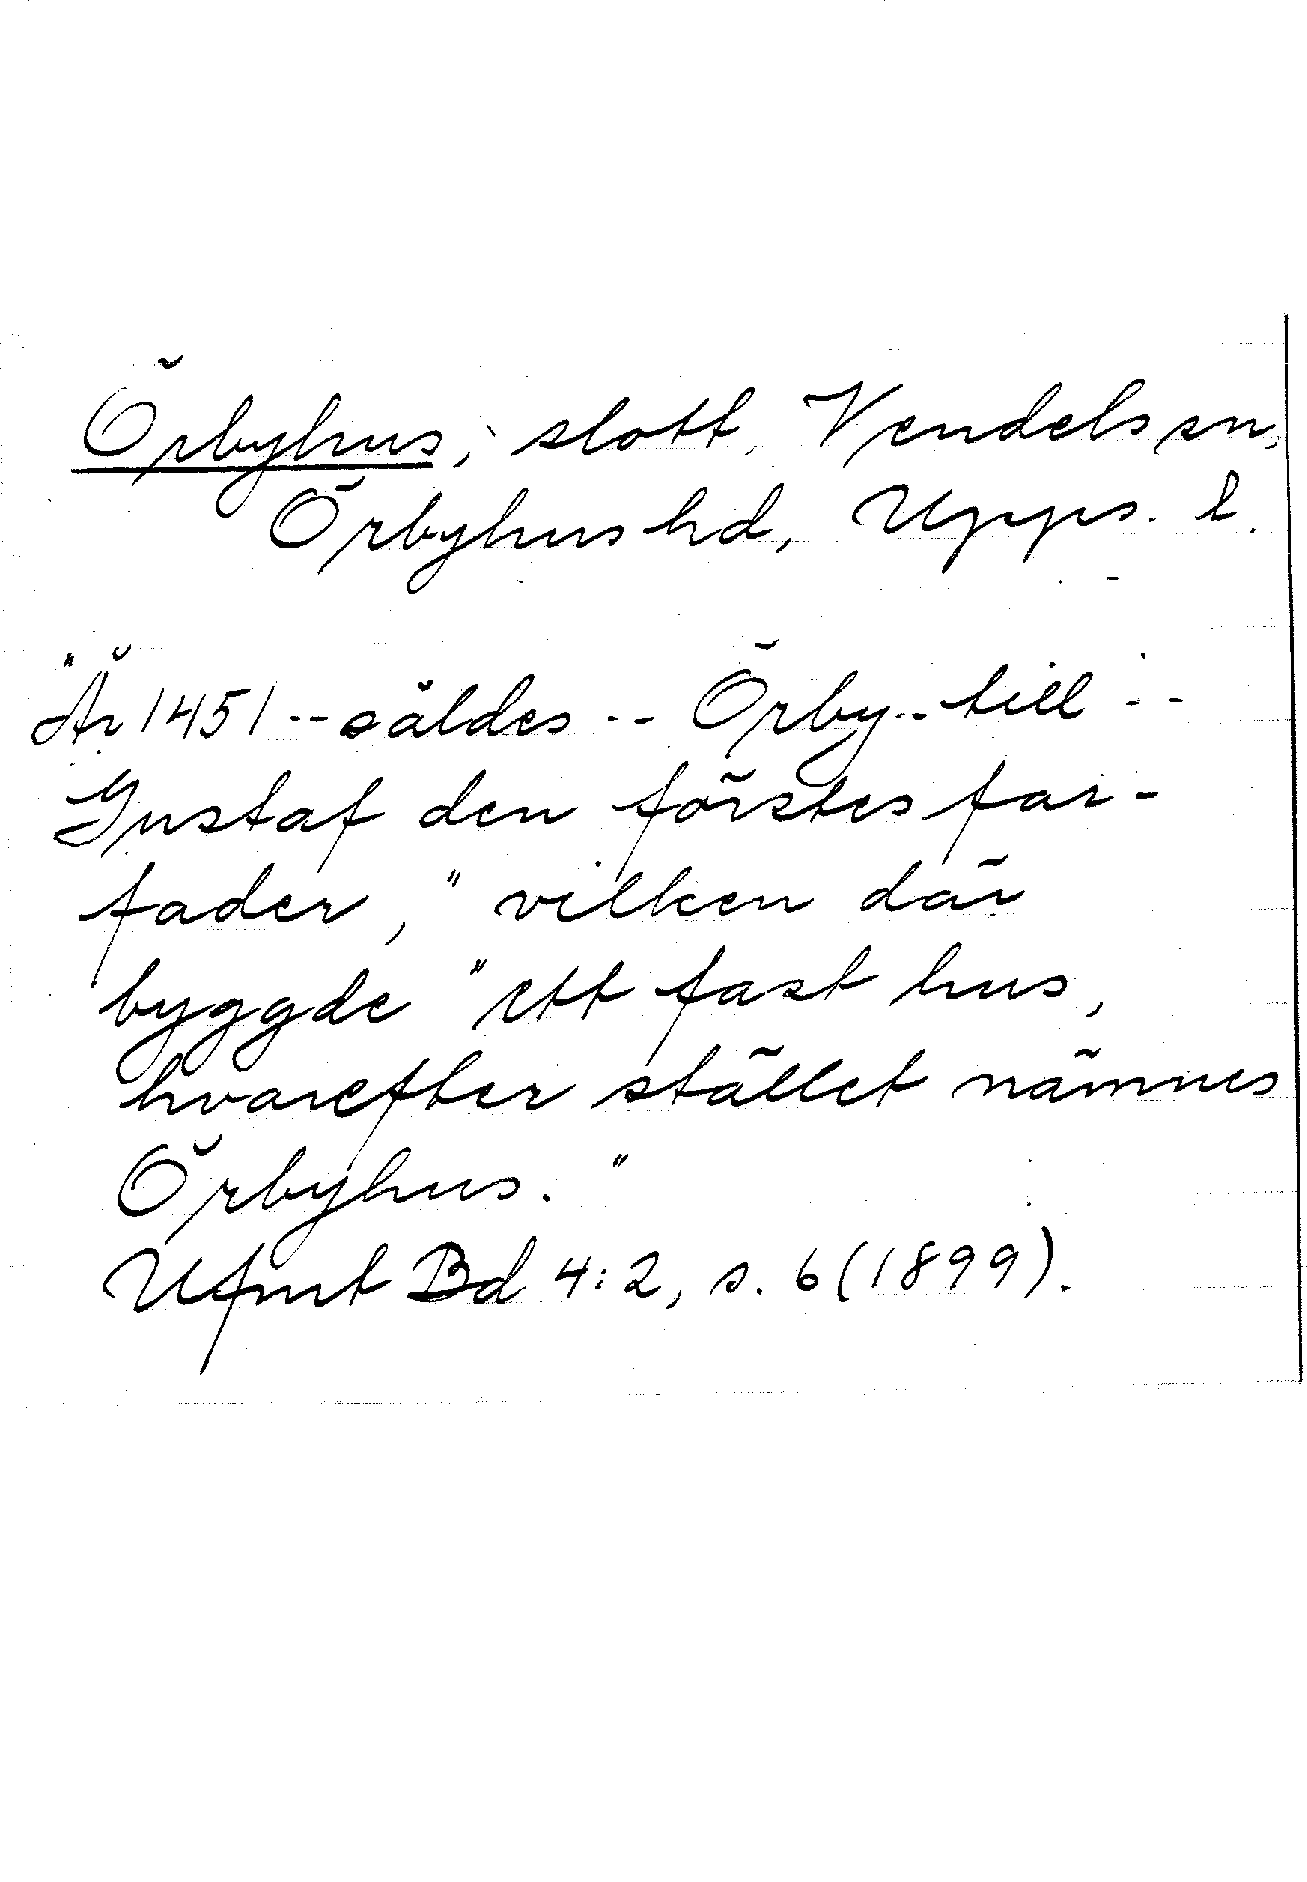 Örbyhus, slott, Vendels sn,
Örbyhus hd, Upps. l.
"År 1451 -- såldes -- Örby -- till --
Gustaf den förstes far-
fader," vilken där
byggde "ett fast hus,
hvarefter stället nämnes
Örbyhus."
Ufmt Bd 4:2, s. 6 (1899).